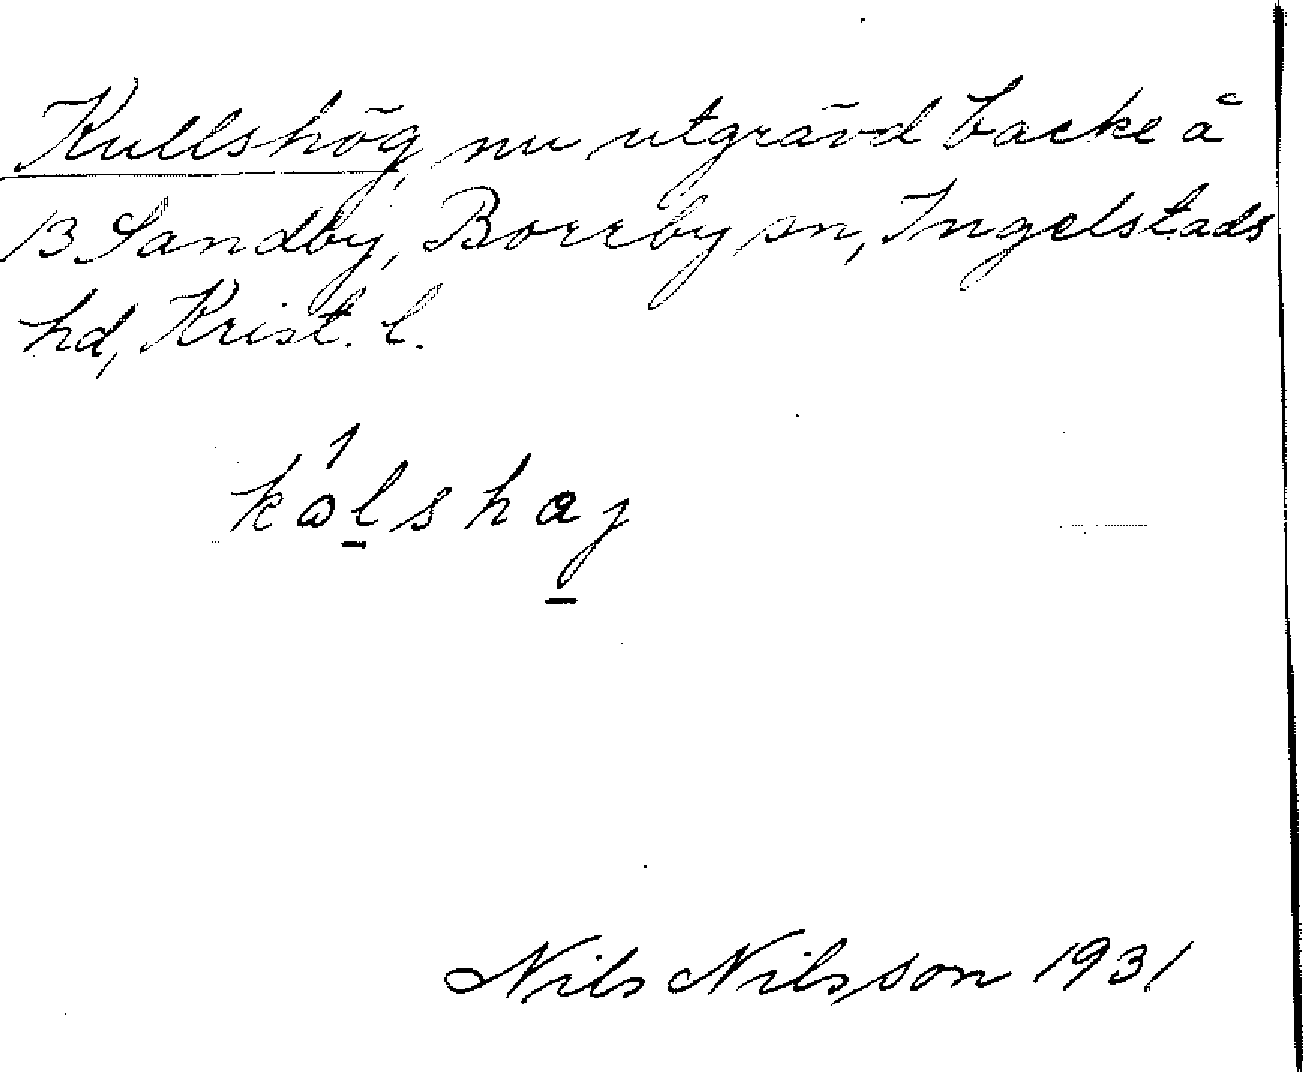 Kullshög, nu utgrävd backe å
13 Sandby, Borrby sn, Ingelstads
hd, Krist. l.
kålshaj
Nils Nilsson 1931